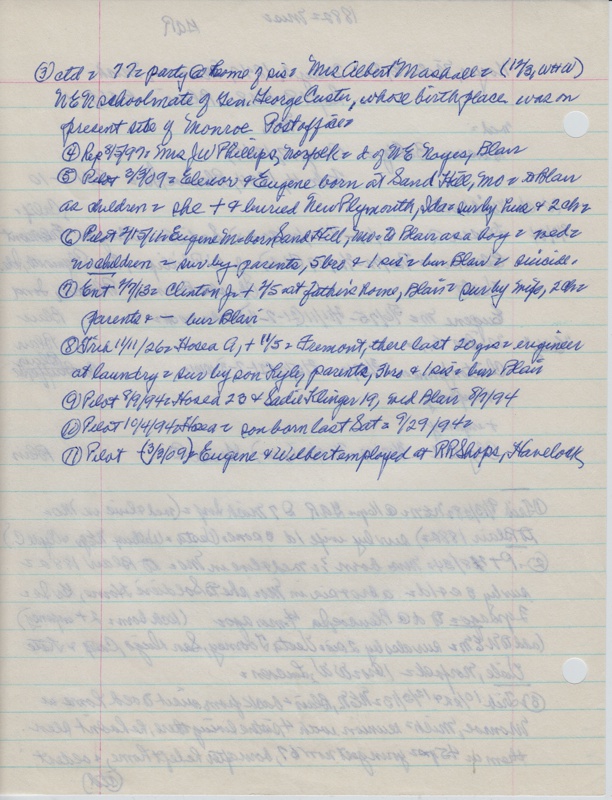 ③ ctd = 77 = party @ home of sis = Mrs Albert Marshall = (12/3, WHW)
NEN schoolmate of Gen. George Custer, whose birthplace was on
present site of Monroe Postoffice =
④ Rep 3/5/97 = Mrs JW Phillips, Norfolk = d of NE Noyes, Blair
⑤ Pilot 3/3/09 = Eleanor & Eugene born at Sand Hill, Mo = to Blair
as children = she + & buried New Plymouth, Ida = sur by hus & 2 ch =
⑥ Pilot = Eugene M = born Sand Hill, Mo = to Blair as a boy = wed =
no children = sur by parents, 5 bro & 1 sis = bur Blair = suicide.
⑦ Ent 2/7/13 = Clinton Jr + 2/5 at father's home, Blair = sur by wife, 2 ch =
parents & — bur Blair
⑧ Trib 11/11/26 = Hosea A, + 11/5 = Fremont, there last 20 yrs = engineer
at laundry = sur by son Kyle, parents, 3 bro & 1 sis = bur Blair
⑨ Pilot 8/9/94 = Hosea 23 & Sadie Klinger 19, md Blair 8/7/94
⑩ Pilot 10/4/94 = Hosea = son born last Sat = 9/29/94 =
⑪ Pilot (3/3/09) = Eugene & Wilbert employed at RR Shops, Havelock